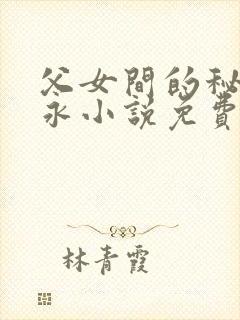 父女間的秘
永小説免費
林青霞